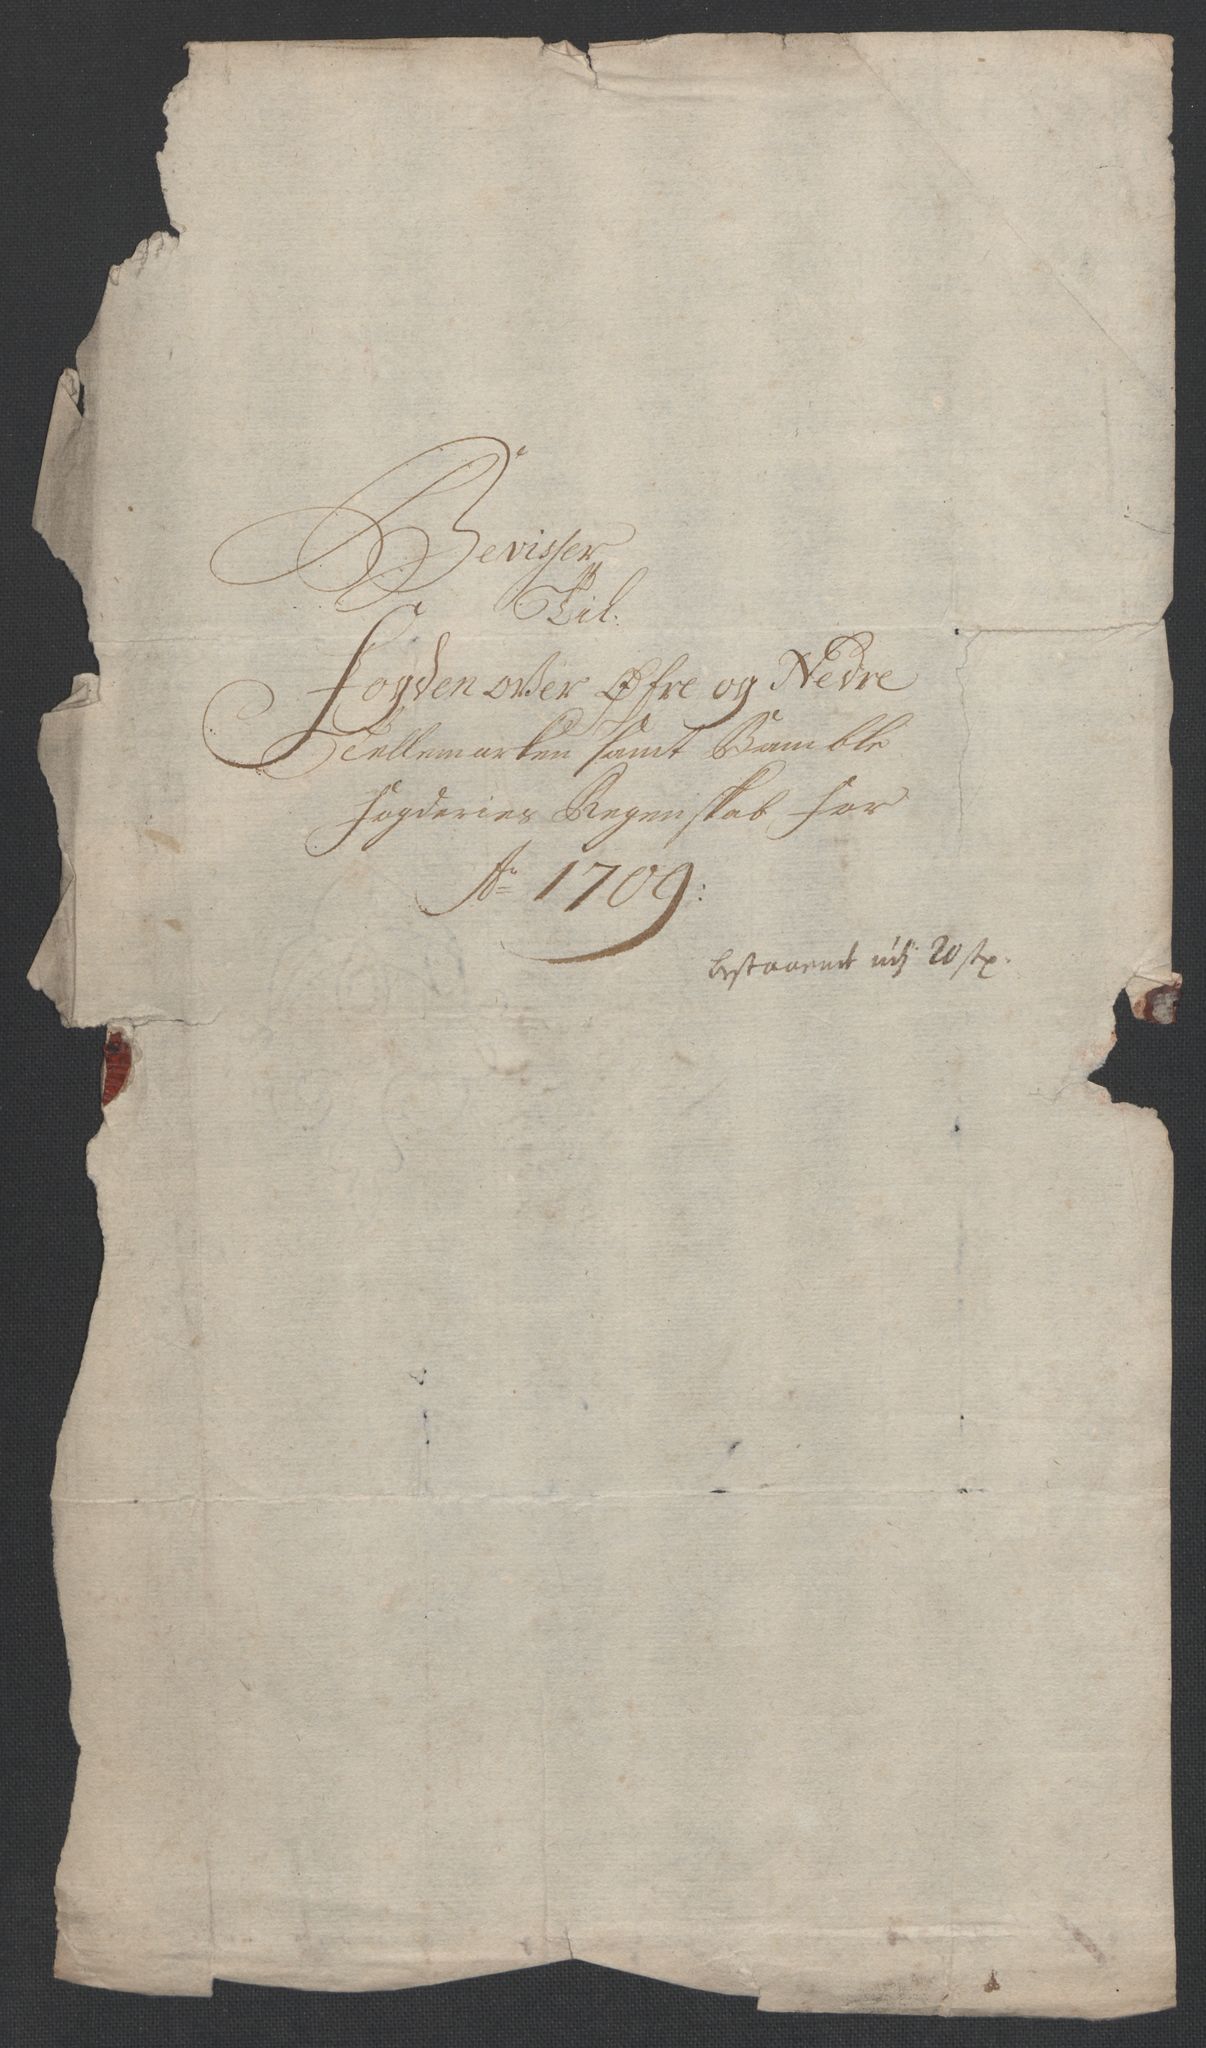 Bevisser
Til
Fogden over Øfre og Nedre
Tellemarken samt Bamble
fogderies Regenskab for
Ao 1709:
bestaaende udj 20 stx.